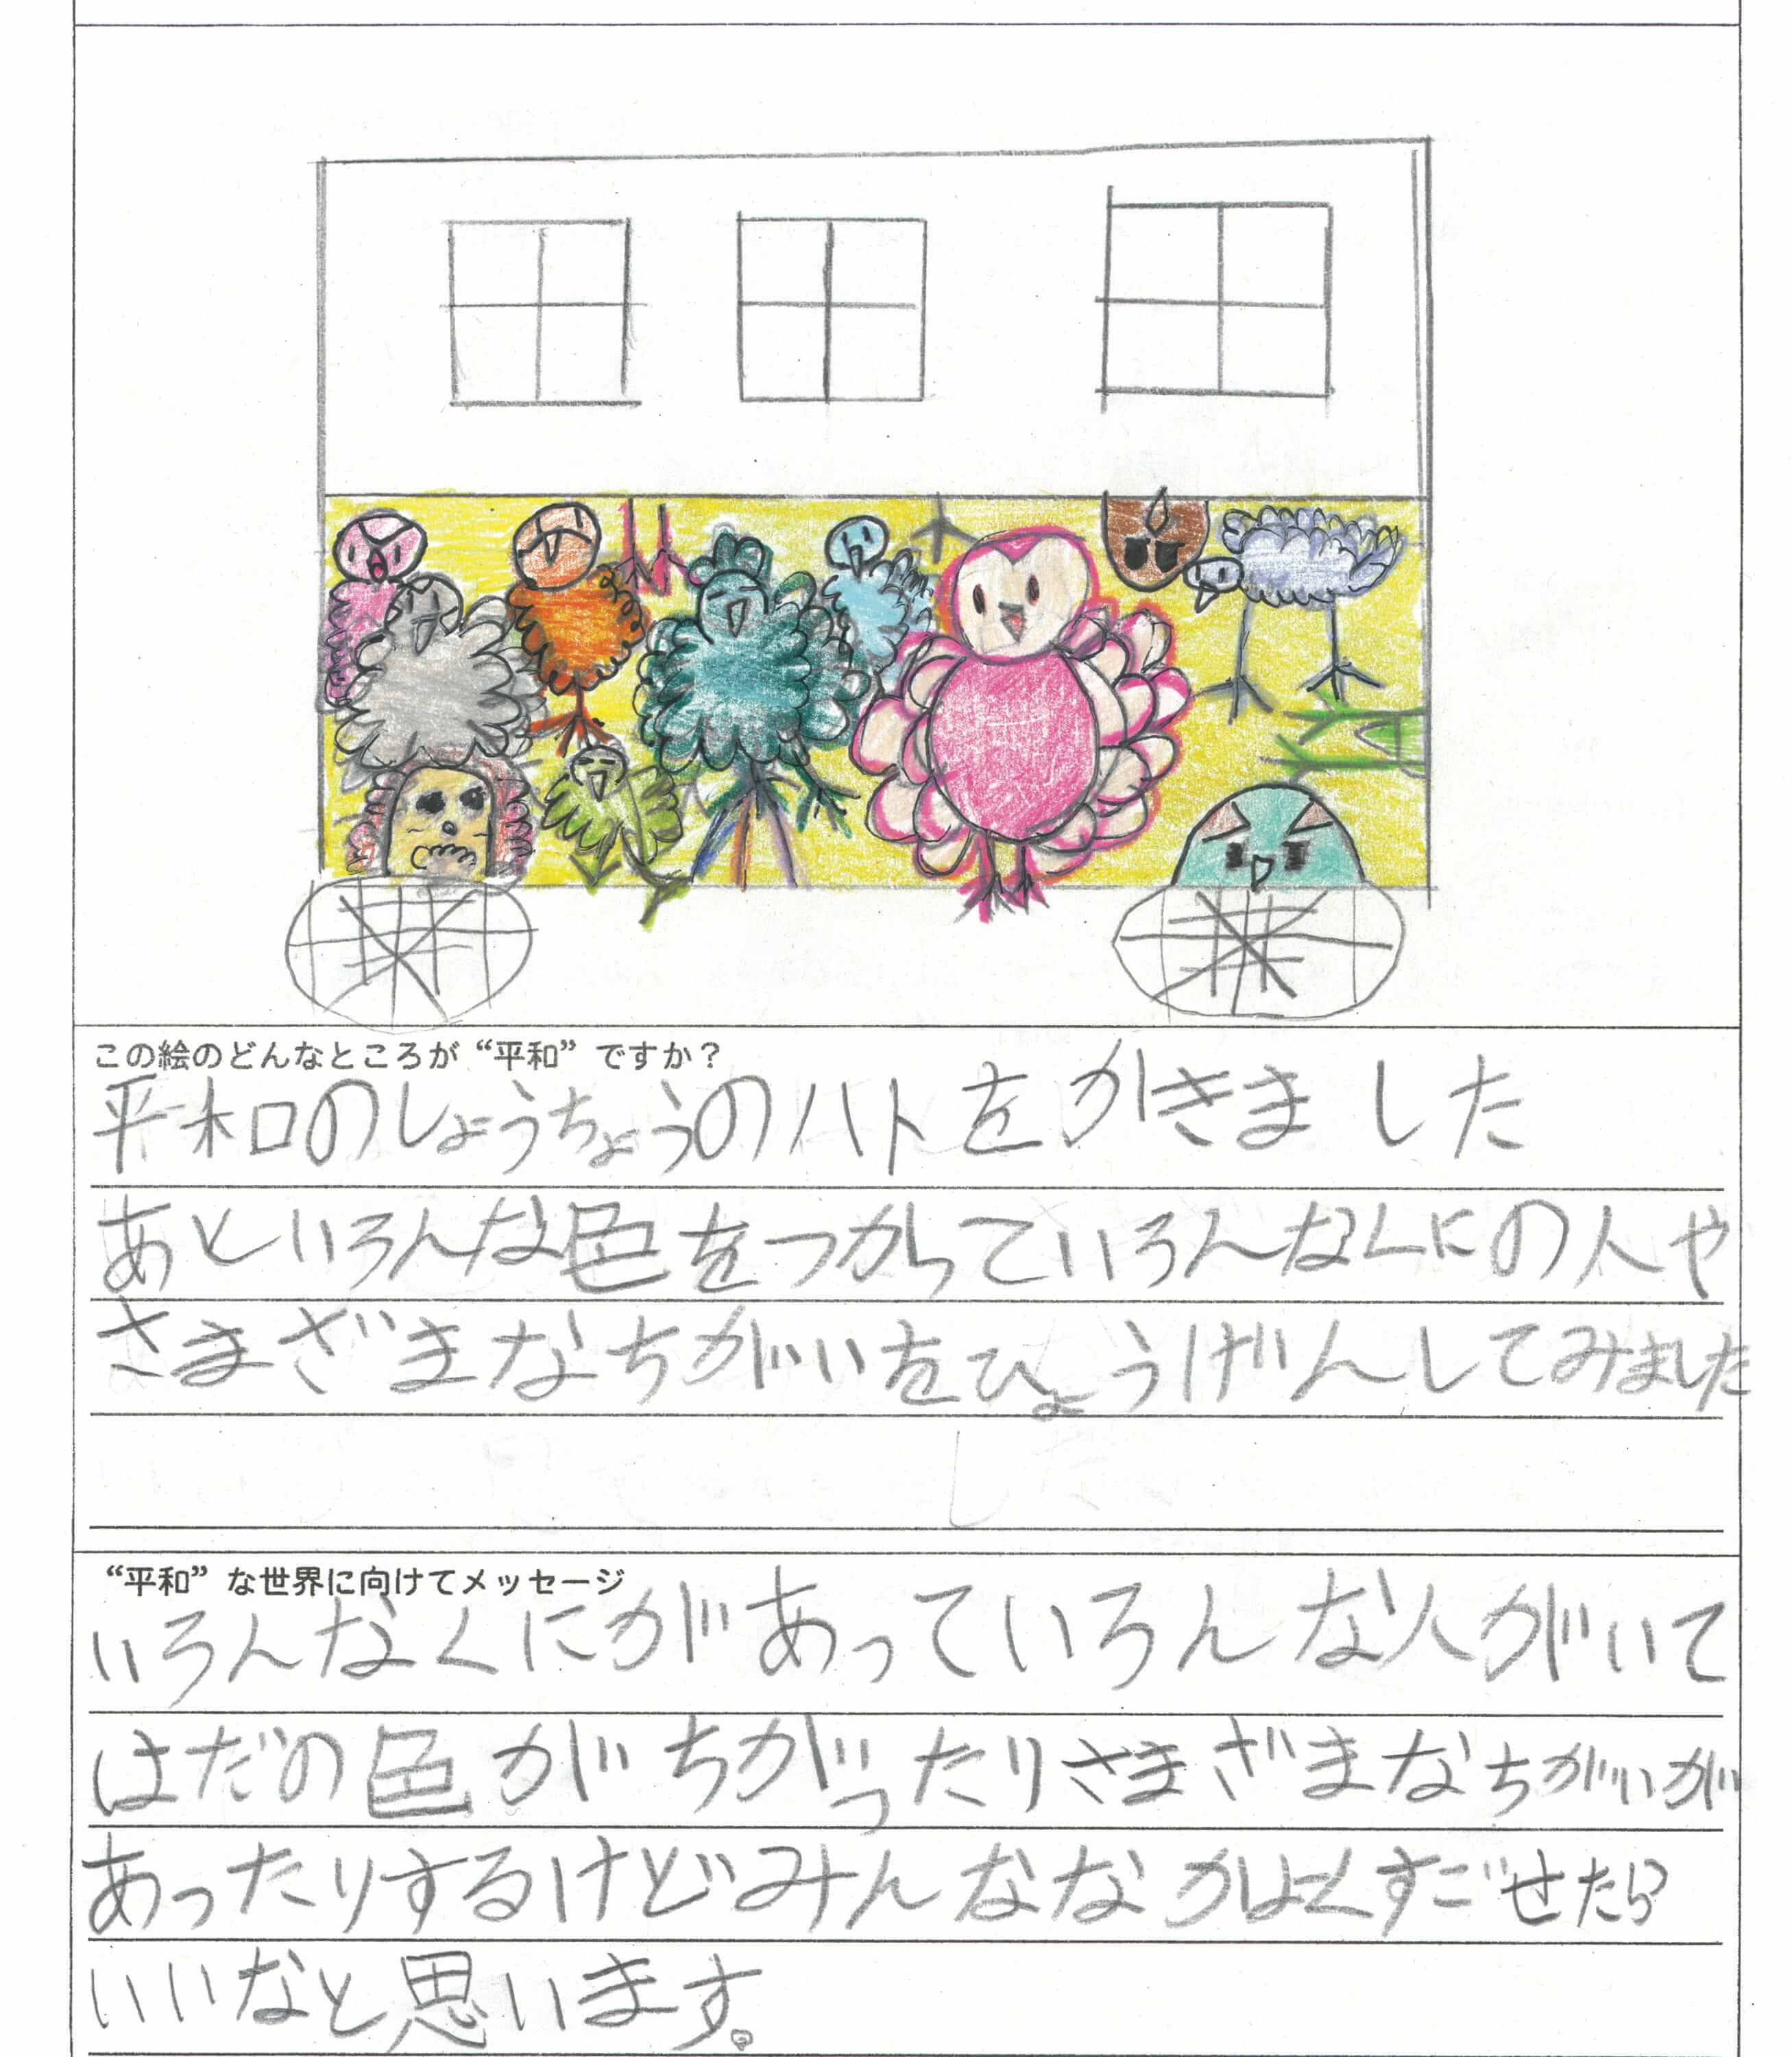 この絵のどんなところが“平和”ですか？
平和のしょうちょうのハトをかきました
あといろんな色をつかっていろんなくにの人や
さまざまなちがいをひょうげんしてみました
“平和”な世界に向けてメッセージ
いろんなくにがあっていろんな人がいて
はだの色がちがったりさまざまなちがいが
あったりするけどみんななかよくすごせたら
いいなと思います。